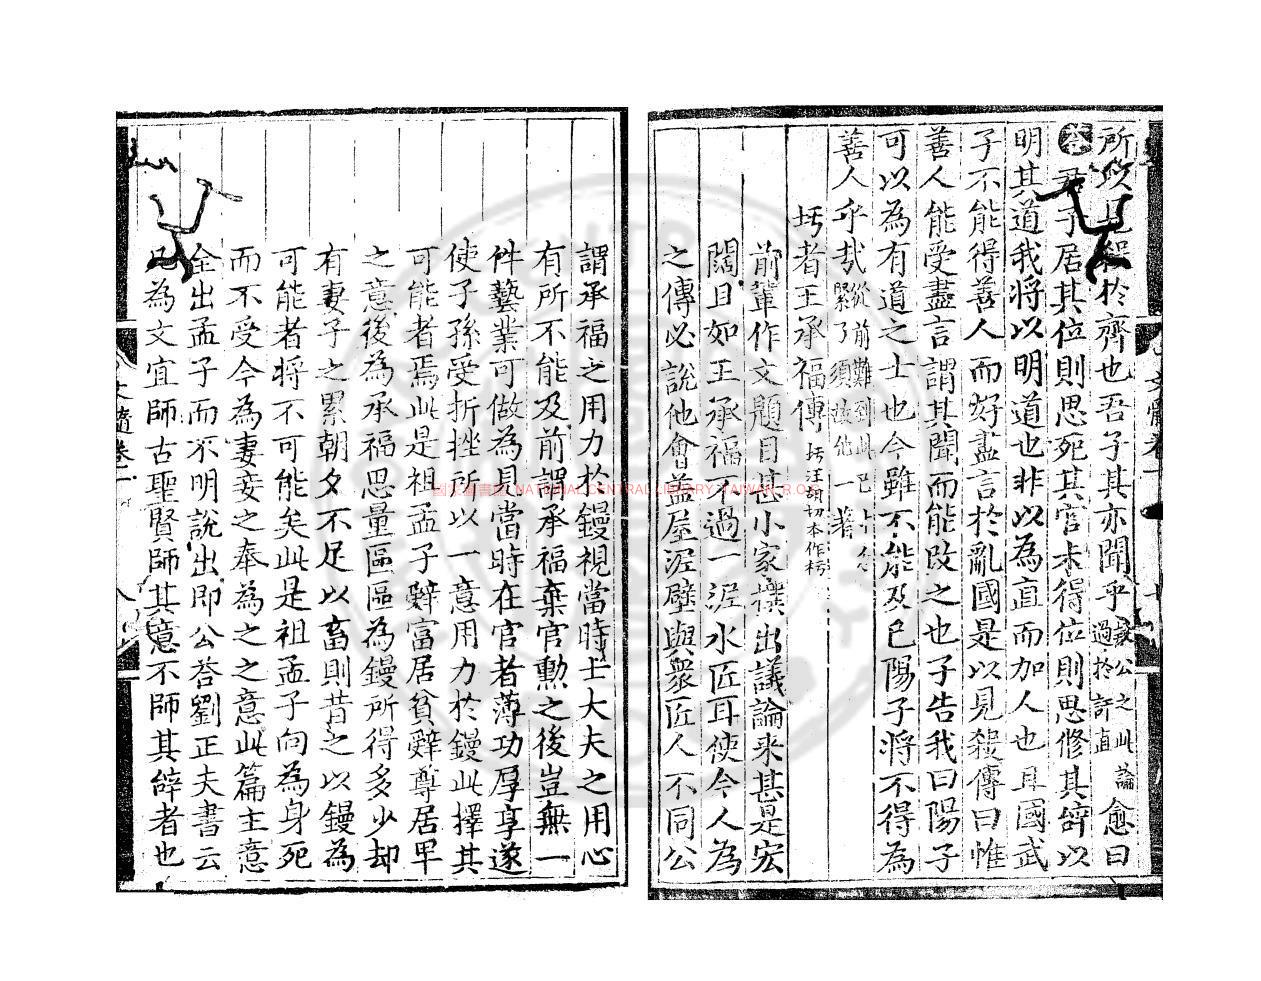 所以見殺於齊也吾子其亦聞乎 過於訐直 愈曰
君子居其位則思死其官未得位則思修其辭以
明其道我將以明道也非以為直而加人也且國武
子不能得善人而好盡言於亂國是以見殺傳曰惟
善人能受盡言謂其聞而能改之也子告我曰陽子
可以為有道之士也今雖不能及已陽子將不得為
善人乎哉 從前難到此已 緊了須放他一著
圬者王承福傳 圬汪胡切本作杇
前輩作文題目甚小家撰出議論来甚是宏
闊且如王承福不過一泥水匠耳使今人為
之傳必說他會蓋屋泥壁與衆匠人不同公
謂承福之用力於鏝視當時士大夫之用心
有所不能及前謂承福棄官勲之後豈無一
件藝業可做為見當時在官者薄功厚享遂
使子孫受折挫所以一意用力於鏝此擇其
可能者焉此是祖孟子辭富居貧辭尊居卑
之意後為承福思量區區為鏝所得多少却
有妻子之累朝夕不足以畜則昔之以鏝為
可能者將不可能矣此是祖孟子向為身死
而不受今為妻妾之奉為之之意此篇主意
全出孟子而不明說出即公答劉正夫書云
凡為文宜師古聖賢師其意不師其辞者也
文髓卷一
國家圖書館 NATIONAL CENTRAL LIBRARY, TAIWAN, R.O.C